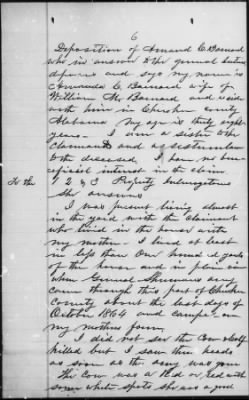 6
Deposition of Amand C. Barnard
who in answer to the general Inter
deposes and says my name is
Amanda C. Barnard wife of
William M. Barnard and reside
with him in Cherokee County
Alabama my age is thirty eight
years — I am a sister to the
claimant and a sister in law
to the deceased, I have no ben
eficial interest in the claim.
To the 1 2 & 3 Property Interrogatories
she answers
I was present living almost
in the yard with the claimant
who lived in the house with
my mother — I lived at least
in less than one hundred yards
of the house and in place
when General Shermans army
came through this part of Cherokee
County about the last days of
October 1864 and camped on
my mothers farm,
I did not see the Cow & Calf
killed but I saw three heads
as soon as the army was gone
The Cow was a Red or Red with
some white spots she was a good